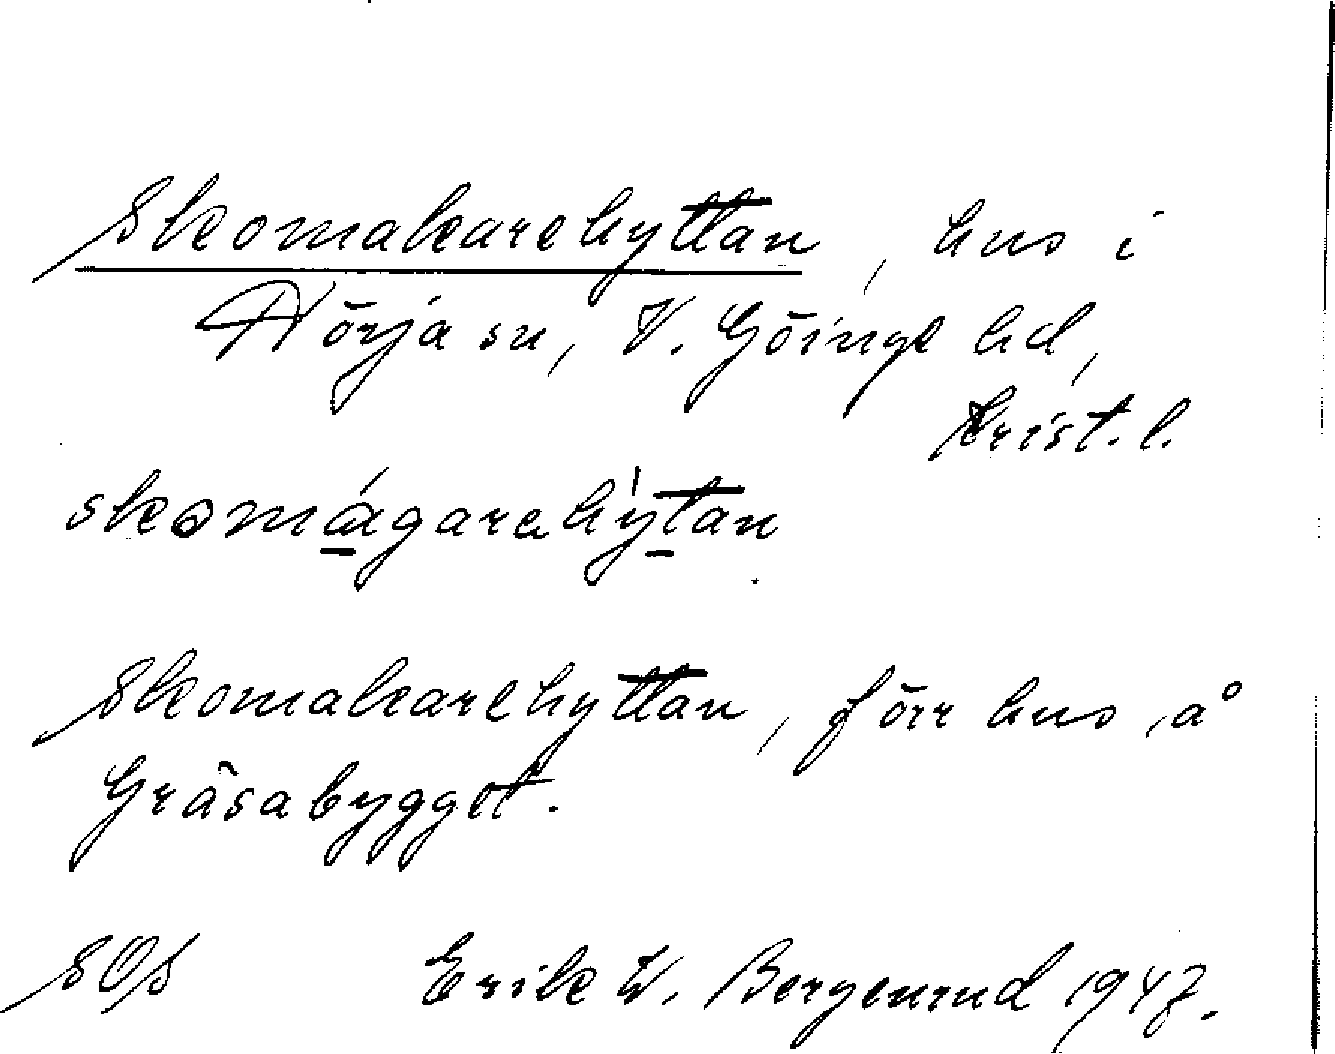 Skomakarehyttan, hus i
Nörja sn, V. Göinge hd,
Krist. l.
skomágarehýtan
Skomakarehyttan, förr hus å
Gräsabygget.
SOS Erik W. Bergenrud 1947.